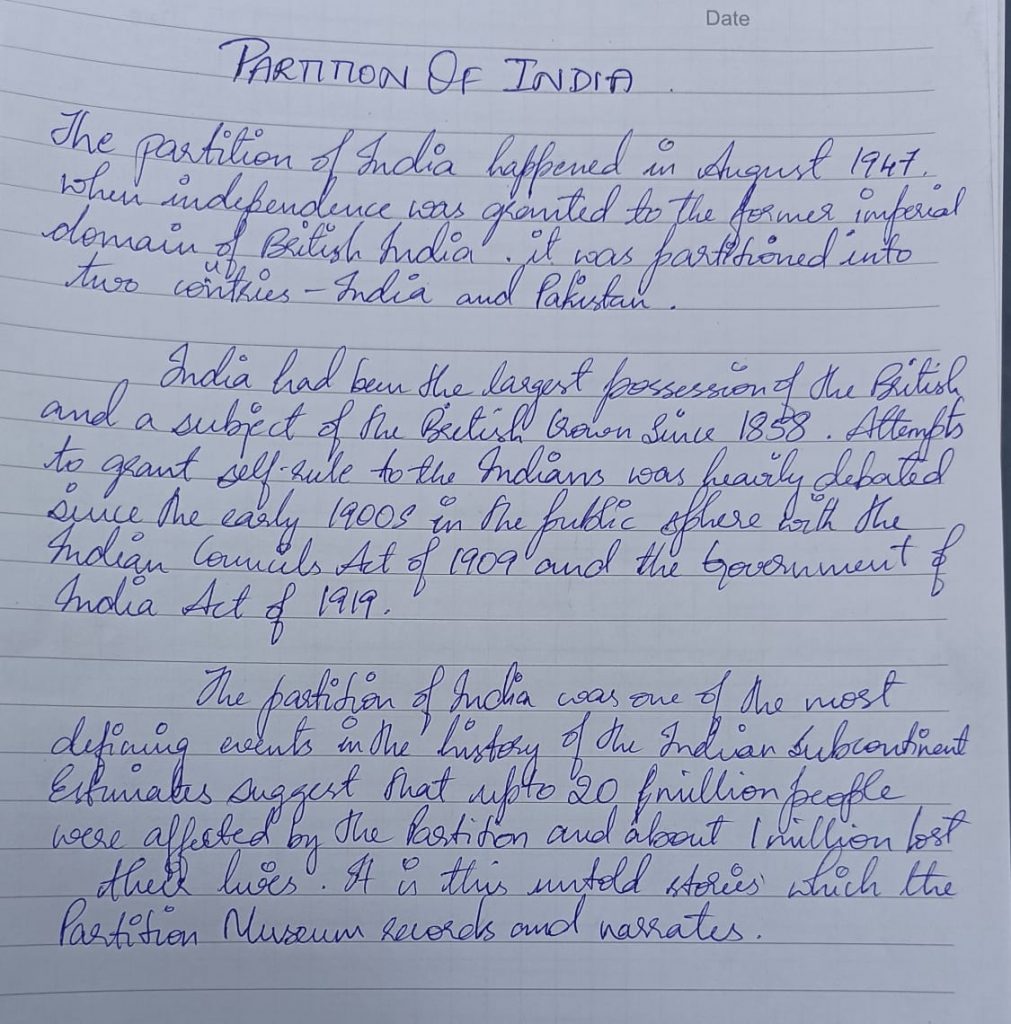 Date
PARTITION OF INDIA.
The partition of India happened in August 1947.
when independence was granted to the former imperial
domain of British India. it was partitioned into
two countries - India and Pakistan.
India had been the largest possession of the British
and a subject of the British Crown Since 1858. Attempts
to grant self-rule to the Indians was heavily debated
since the early 1900s in the public sphere with the
Indian Councils Act of 1909 and the Government of
India Act of 1919.
The partition of India was one of the most
defining events in the history of the Indian Subcontinent
Estimates suggest that upto 20 million people
were affected by the Partition and about 1 million lost
their lives. It is this untold stories which the
Partition Museum records and narrates.